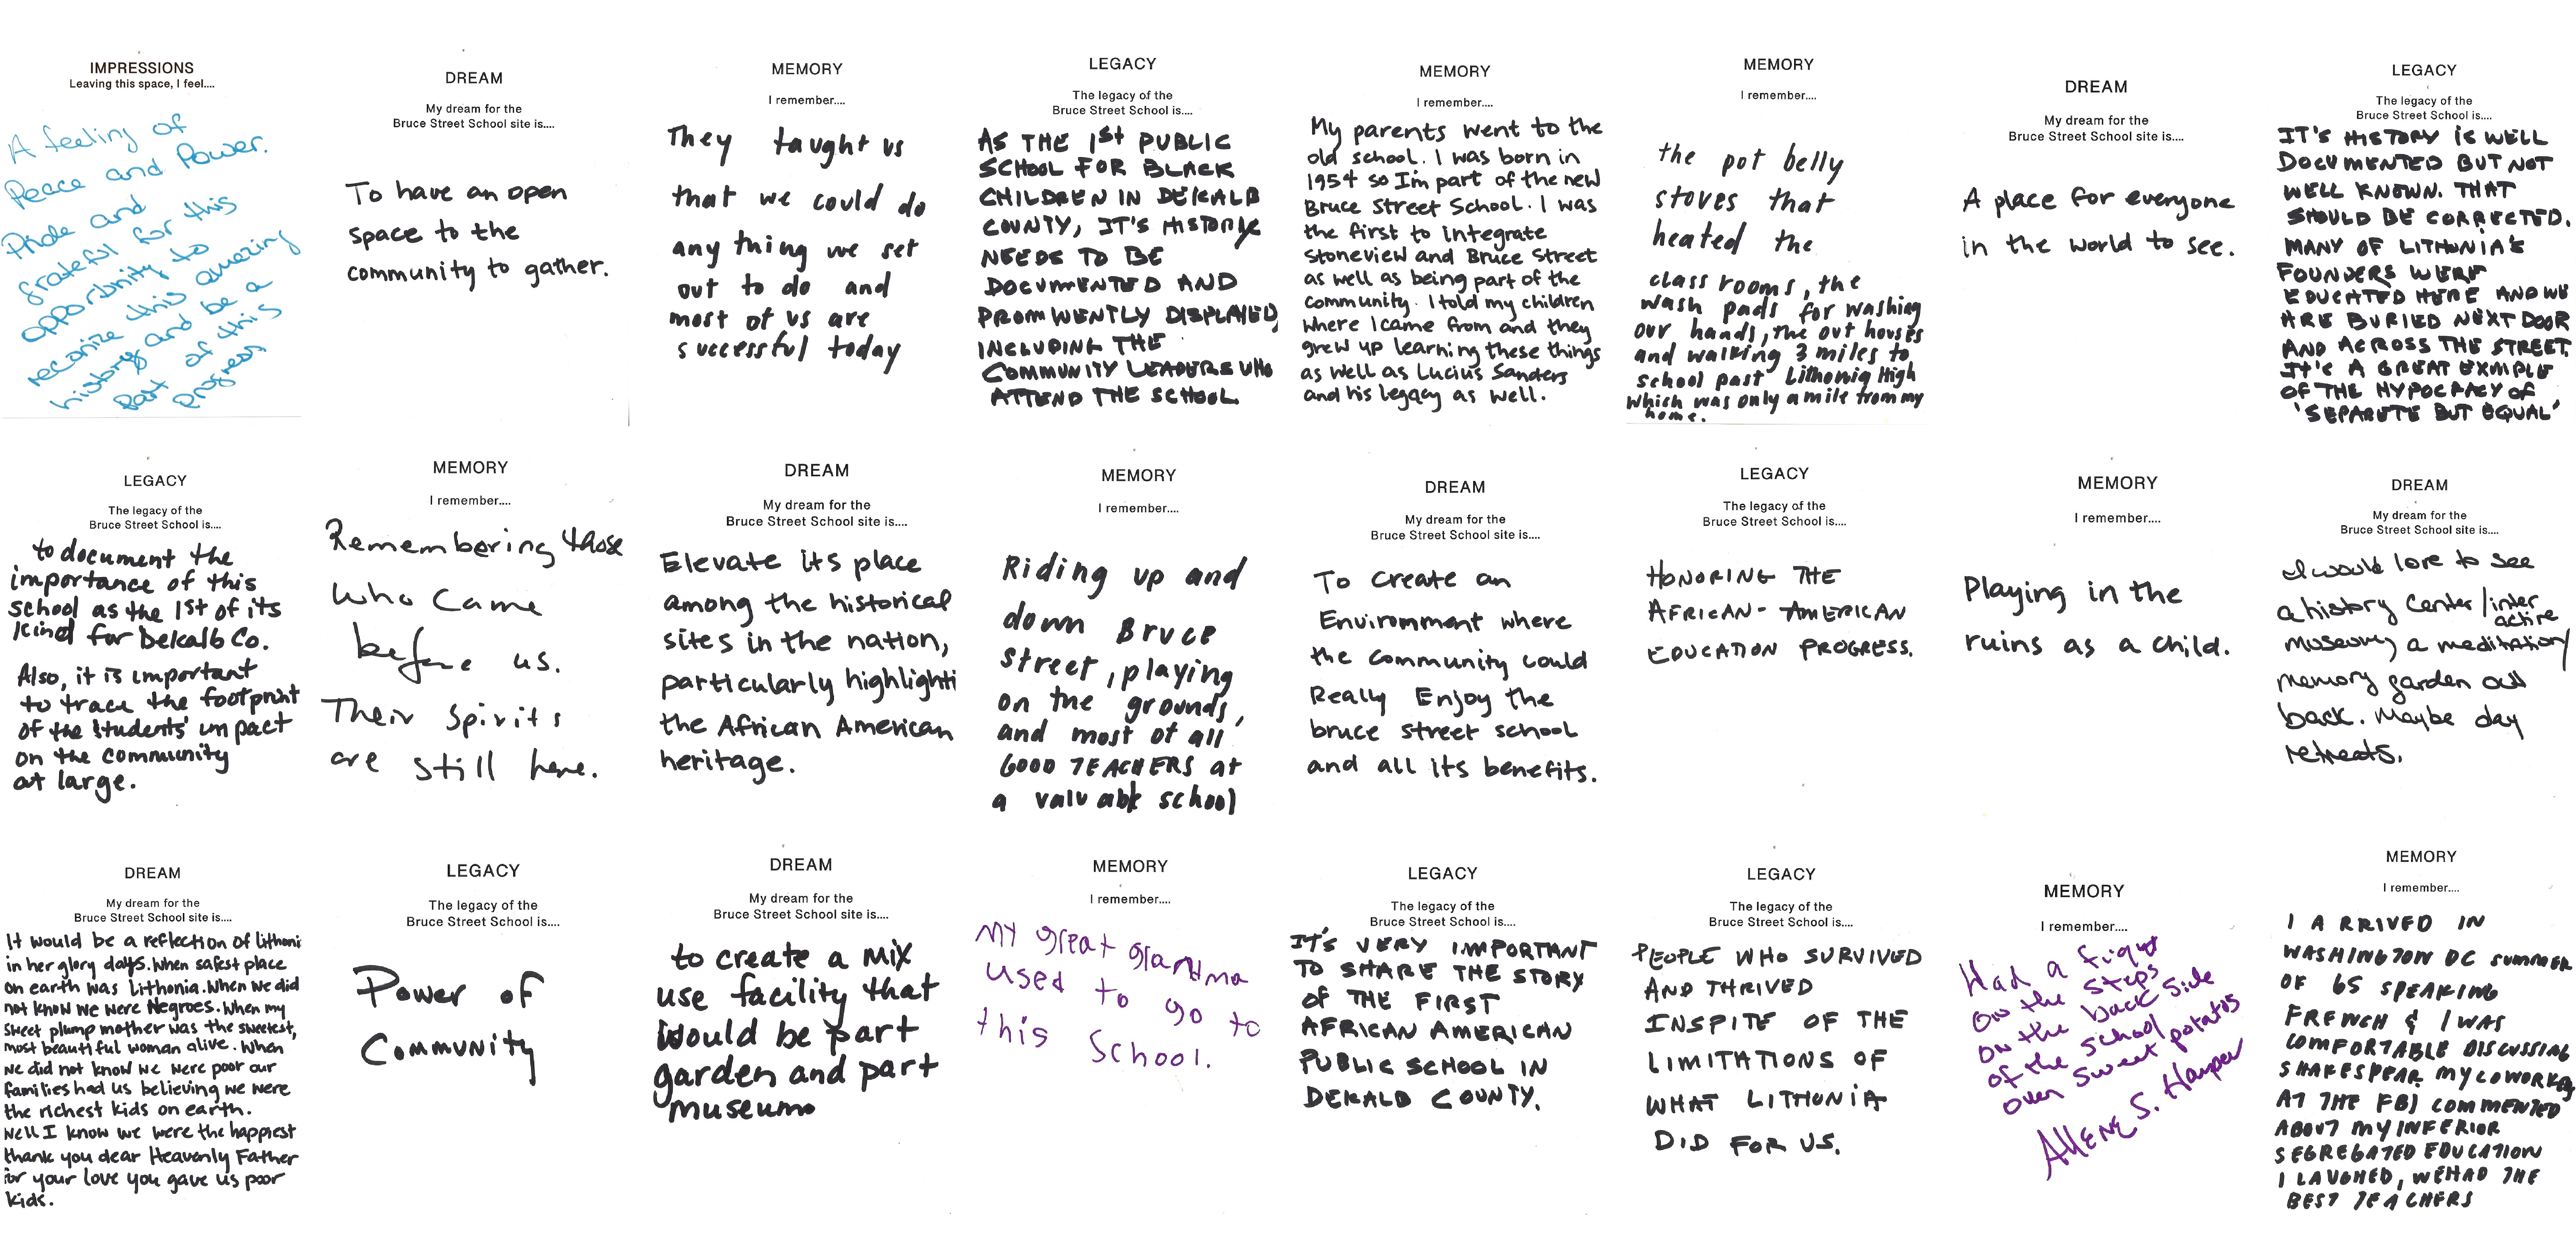 IMPRESSIONS
Leaving this space, I feel....
A feeling of
Peace and Power.
Pride and
grateful for this
opportunity to
reconize this amazing
history and be a
part of this
progress
DREAM
My dream for the
Bruce Street School site is....
To have an open
space to the
community to gather.
MEMORY
I remember....
They taught us
that we could do
any thing we set
out to do and
most of us are
successful today
LEGACY
The legacy of the
Bruce Street School is....
AS THE 1st PUBLIC
SCHOOL FOR BLACK
CHILDREN IN DEKALB
COUNTY, IT'S HISTORY
NEEDS TO BE
DOCUMENTED AND
PROMINENTLY DISPLAYED,
INCLUDING THE
COMMUNITY LEADERS WHO
ATTEND THE SCHOOL
MEMORY
I remember....
My parents went to the
old school. I was born in
1954 so I'm part of the new
Bruce Street School. I was
the first to integrate
Stoneview and Bruce Street
as well as being part of the
community. I told my children
where I came from and they
grew up learning these things
as well as Lucius Sanders
and his legacy as well.
MEMORY
I remember....
the pot belly
stoves that
heated the
class rooms, the
wash pads for washing
our hands, the out houses
and walking 3 miles to
school past Lithonia High
which was only a mile from my
home.
DREAM
My dream for the
Bruce Street School site is....
A place for everyone
in the world to see.
LEGACY
The legacy of the
Bruce Street School is....
IT'S HISTORY IS WELL
DOCUMENTED BUT NOT
WELL KNOWN. THAT
SHOULD BE CORRECTED.
MANY OF LITHONIA'S
FOUNDERS WERE
EDUCATED HERE AND WE
ARE BURIED NEXT DOOR
AND ACROSS THE STREET.
IT'S A GREAT EXMPLE
OF THE HYPOCRACY OF
'SEPARETE BUT EQUAL'
LEGACY
The legacy of the
Bruce Street School is....
to document the
importance of this
school as the 1st of its
kind for Dekalb Co.
Also, it is important
to trace the footprint
of the students' impact
on the community
at large.
MEMORY
I remember....
Remembering those
who came
before us.
Their spirits
are still here.
DREAM
My dream for the
Bruce Street School site is....
Elevate its place
among the historical
sites in the nation,
particularly highlighti
the African American
heritage.
MEMORY
I remember....
Riding up and
down Bruce
street, playing
on the grounds,
and most of all
GOOD TEACHERS at
a valuable school
DREAM
My dream for the
Bruce Street School site is....
To create an
Enviromment where
the community could
Really Enjoy the
bruce street school
and all its benefits.
LEGACY
The legacy of the
Bruce Street School is....
HONORING THE
AFRICAN-AMERICAN
EDUCATION PROGRESS.
MEMORY
I remember....
Playing in the
ruins as a child.
DREAM
My dream for the
Bruce Street School site is....
I would love to see
a history center/inter
active
museum, a meditation/
memory garden out
back. Maybe day
retreats.
DREAM
My dream for the
Bruce Street School site is....
It would be a reflection of lithoni
in her glory days. When safest place
on earth was Lithonia. When we did
not know we were Negroes. When my
sweet plump mother was the sweetest,
most beautiful woman alive. When
we did not know we were poor our
families had us believing we were
the richest kids on earth.
Well I know we were the happiest
thank you dear Heavenly Father
for your love you gave us poor
kids.
LEGACY
The legacy of the
Bruce Street School is....
Power of
Community
DREAM
My dream for the
Bruce Street School site is....
to create a mix
use facility that
would be part
garden and part
museum
MEMORY
I remember....
My great grandma
used to go to
this School.
LEGACY
The legacy of the
Bruce Street School is....
IT'S VERY IMPORTANT
TO SHARE THE STORY
OF THE FIRST
AFRICAN AMERICAN
PUBLIC SCHOOL IN
DEKALB COUNTY.
LEGACY
The legacy of the
Bruce Street School is....
PEOPLE WHO SURVIVED
AND THRIVED
INSPITE OF THE
LIMITATIONS OF
WHAT LITHONIA
DID FOR US.
MEMORY
I remember....
Had a fight
on the steps
on the back side
of the school
over sweet potatos
Allene S. Harper
MEMORY
I remember....
I ARRIVED IN
WASHINGTON DC SUMMER
OF 65 SPEAKING
FRENCH & I WAS
COMFORTABLE DISCUSSING
SHAKESPEAR. MY COWORKERS
AT THE FBI COMMENTED
ABOUT MY INFERIOR
SEGREGATED EDUCATION
I LAUGHED, WE HAD THE
BEST TEACHERS